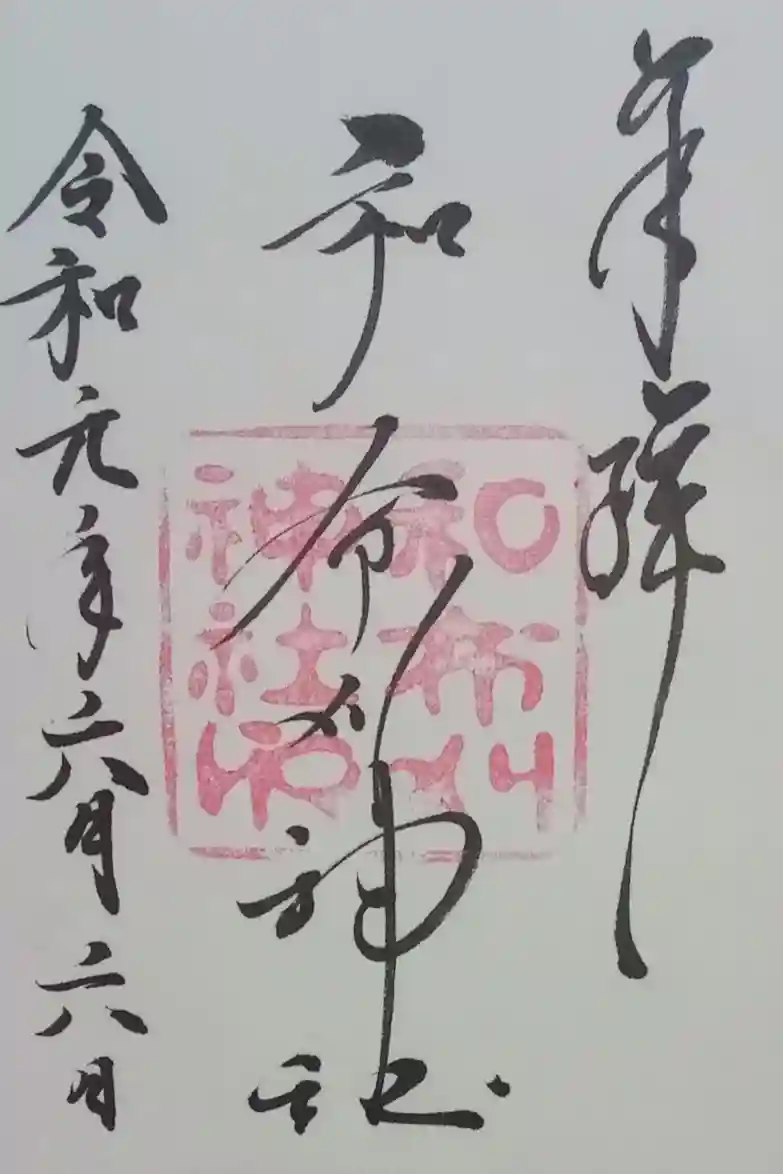 奉拝
和布刈神社
令和元年六月六日
和布刈
神社印